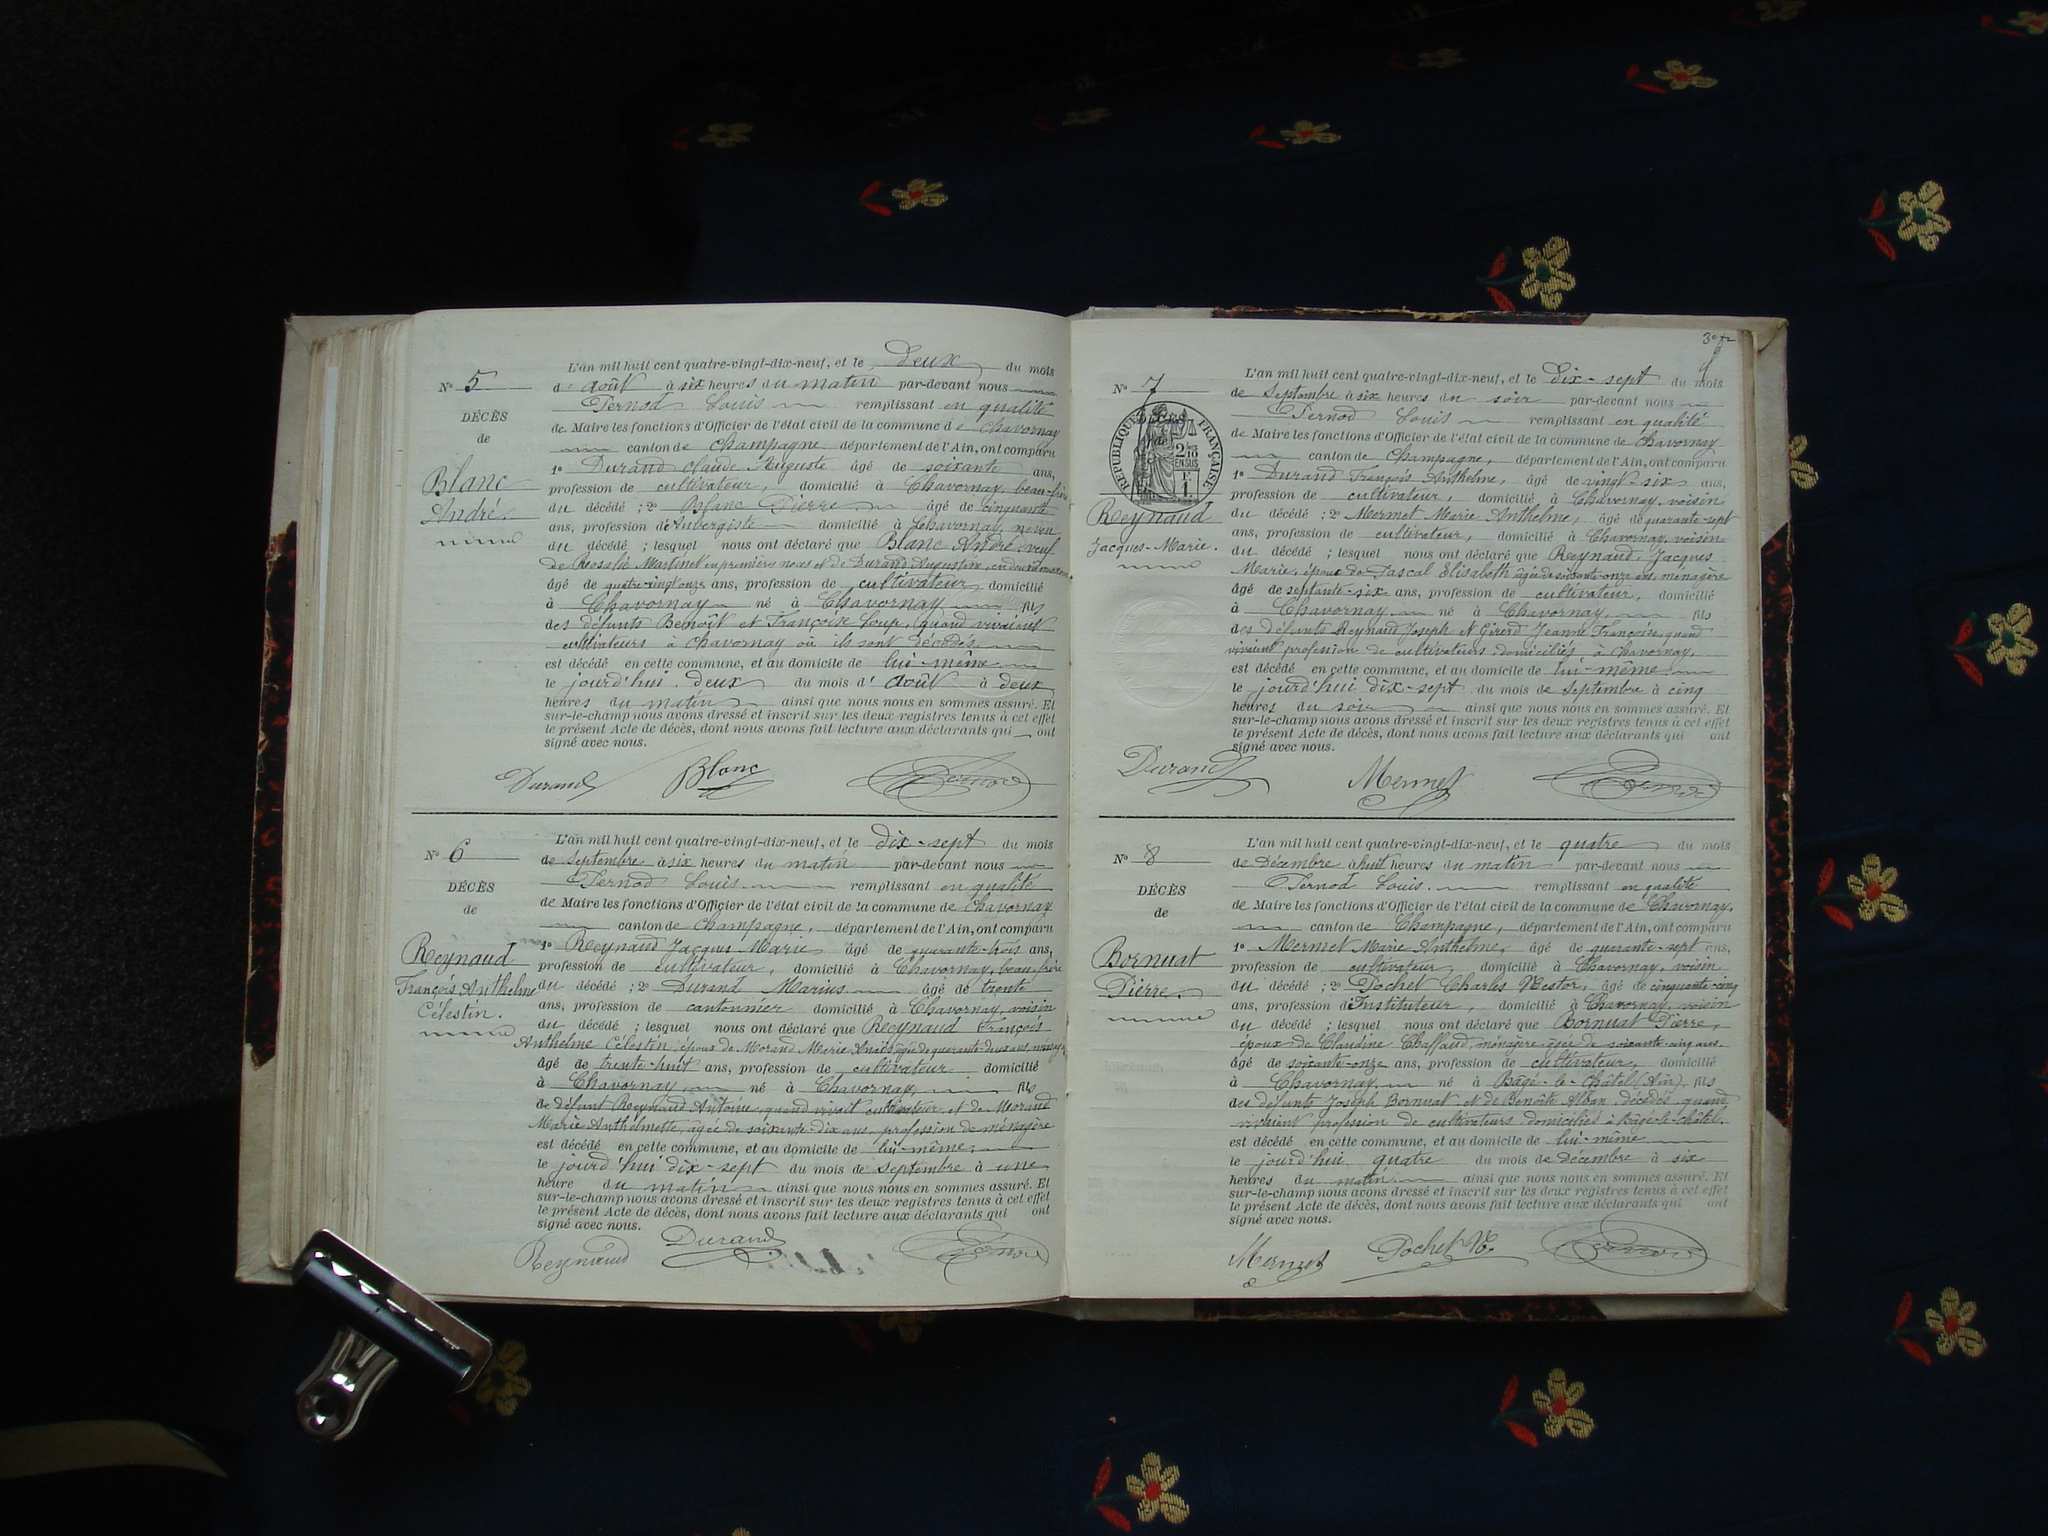 N° 5
DÉCÈS
de
Blanc
André.
L'an mil huit cent quatre-vingt-dix-neuf, et le deux du mois
d' août à six heures du matin par-devant nous
Pernod Louis remplissant en qualité
de Maire les fonctions d'Officier de l'état civil de la commune de Chavornay
canton de Champagne, département de l'Ain, ont comparu
1° Durand Claude Auguste âgé de soixante ans,
profession de cultivateur, domicilié à Chavornay, beau-frère
du décédé ; 2° Blanc Pierre âgé de cinquante
ans, profession d'Aubergiste domicilié à Chavornay, neveu
du décédé ; lesquel nous ont déclaré que Blanc André, veuf
de Rosalie Martinet en premières noces et de Durand Augustine, en
âgé de quatre-vingt onze ans, profession de cultivateur domicilié
à Chavornay né à Chavornay fils
des défunts Benoît et Françoise Loup, quand vivaient
cultivateurs à Chavornay où ils sont décédés,
est décédé en cette commune, et au domicile de lui-même
le jourd'hui deux du mois d' août à deux
heures du matin ainsi que nous nous en sommes assuré. Et
sur-le-champ nous avons dressé et inscrit sur les deux registres tenus à cet effet
le présent Acte de décès, dont nous avons fait lecture aux déclarants qui ont
signé avec nous.
Durand Blanc Pernod
N° 6
DÉCÈS
de
Reynaud
François Anthelme
Célestin.
L'an mil huit cent quatre-vingt-dix-neuf, et le dix-sept du mois
de septembre à six heures du matin par-devant nous
Pernod Louis remplissant en qualité
de Maire les fonctions d'Officier de l'état civil de la commune de Chavornay
canton de Champagne, département de l'Ain, ont comparu
1° Reynaud Jacques Marie âgé de quarante-trois ans,
profession de cultivateur, domicilié à Chavornay, beau-frère
du décédé ; 2° Durand Marius âgé de trente
ans, profession de cantonnier domicilié à Chavornay, voisin
du décédé ; lesquel nous ont déclaré que Reynaud François
Anthelme Célestin, époux de Morand Marie Anaïs âgée de quarante-deux ans,
âgé de trente-huit ans, profession de cultivateur domicilié
à Chavornay né à Chavornay, fils
de défunt Reynaud Antoine, quand vivait cultivateur et de Morand
Marie Anthelmette, âgée de soixante-dix ans, profession de ménagère
est décédé en cette commune, et au domicile de lui-même,
le jourd'hui dix-sept du mois de septembre à une
heure du matin ainsi que nous nous en sommes assuré. Et
sur-le-champ nous avons dressé et inscrit sur les deux registres tenus à cet effet
le présent Acte de décès, dont nous avons fait lecture aux déclarants qui ont
signé avec nous.
Reynaud Durand Pernod
N° 7
DÉCÈS
de
RÉPUBLIQUE FRANÇAISE
2/10 EN SUS
1 F
Reynaud
Jacques-Marie.
L'an mil huit cent quatre-vingt-dix-neuf, et le dix-sept du mois
de Septembre à six heures du soir par-devant nous
Pernod Louis remplissant en qualité
de Maire les fonctions d'Officier de l'état civil de la commune de Chavornay
canton de Champagne, département de l'Ain, ont comparu
1° Durand François Anthelme, âgé de vingt-six ans,
profession de cultivateur, domicilié à Chavornay, voisin
du décédé ; 2° Mermet Marie Anthelme, âgé de quarante-sept
ans, profession de cultivateur, domicilié à Chavornay, voisin
du décédé ; lesquel nous ont déclaré que Reynaud Jacques
Marie, époux de Pascal Elisabeth âgée de soixante-onze ans, ménagère
âgé de septante-six ans, profession de cultivateur, domicilié
à Chavornay né à Chavornay, fils
des défunts Reynaud Joseph et Girerd Jeanne Françoise, quand
vivaient profession de cultivateurs domiciliés à Chavornay,
est décédé en cette commune, et au domicile de lui-même
le jourd'hui dix-sept du mois de septembre à cinq
heures du soir ainsi que nous nous en sommes assuré. Et
sur-le-champ nous avons dressé et inscrit sur les deux registres tenus à cet effet
le présent Acte de décès, dont nous avons fait lecture aux déclarants qui ont
signé avec nous.
Durand Mermet Pernod
N° 8
DÉCÈS
de
Bornuat
Pierre.
L'an mil huit cent quatre-vingt-dix-neuf, et le quatre du mois
de Décembre à huit heures du matin par-devant nous
Pernod Louis. remplissant en qualité
de Maire les fonctions d'Officier de l'état civil de la commune de Chavornay,
canton de Champagne, département de l'Ain, ont comparu
1° Mermet Marie Anthelme, âgé de quarante-sept ans,
profession de cultivateur domicilié à Chavornay, voisin
du décédé ; 2° Pochet Charles Nestor, âgé de cinquante-cinq
ans, profession d'Instituteur, domicilié à Chavornay, voisin
du décédé ; lesquel nous ont déclaré que Bornuat Pierre,
époux de Claudine Chaffaud, ménagère âgée de soixante-cinq ans.
âgé de soixante-onze ans, profession de cultivateur, domicilié
à Chavornay né à Bâgé-le-Châtel (Ain), fils
des défunts Joseph Bornuat et de Benoîte Alban, décédés quand
vivaient profession de cultivateurs domiciliés à Bâgé-le-Châtel.
est décédé en cette commune, et au domicile de lui-même
le jourd'hui quatre du mois de décembre à six
heures du matin ainsi que nous nous en sommes assuré. Et
sur-le-champ nous avons dressé et inscrit sur les deux registres tenus à cet effet
le présent Acte de décès, dont nous avons fait lecture aux déclarants qui ont
signé avec nous.
Mermet Pochet N. Pernod